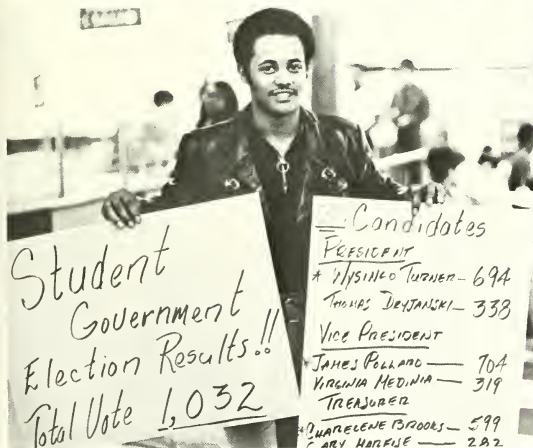 Student
Government
Election Results!!
Total Vote 1,032
Candidates
PRESIDENT
* TURNER - 694
THOMAS DRYJANSKI - 338
VICE PRESIDENT
* JAMES POLLARD — 704
VIRGINIA MEDINIA — 319
TREASURER
* CHARELENE BROOKS - 599
GARY — 282